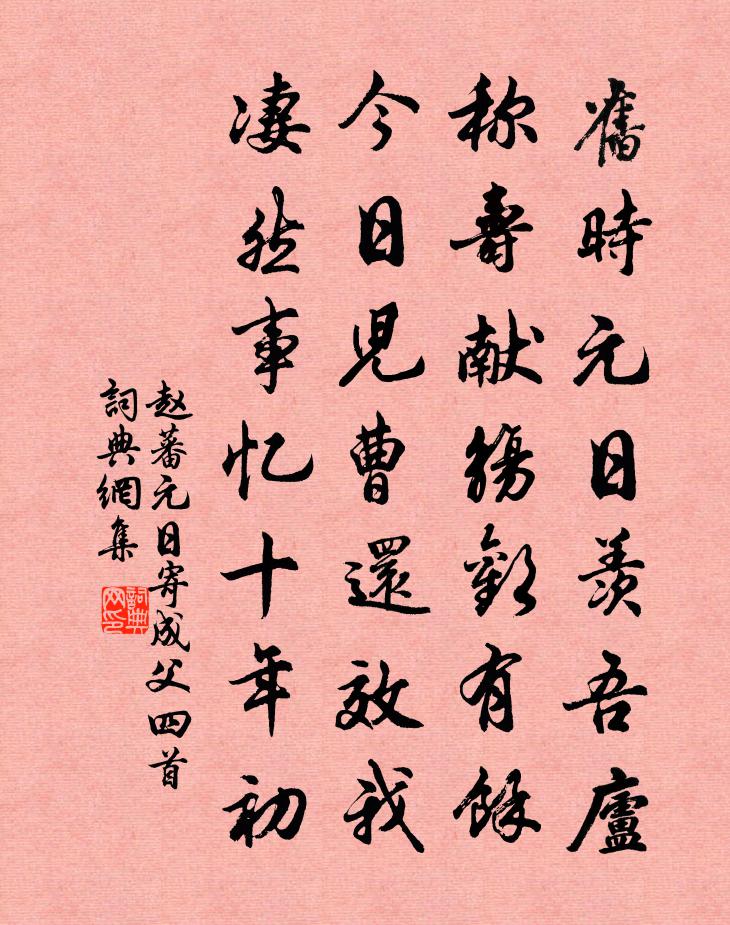 舊時元日羨吾廬
称壽献觴歡有餘
今日児曹還效我
凄然事忆十年初
赵蕃元日寄成父四首
詞典網集
詞典网印